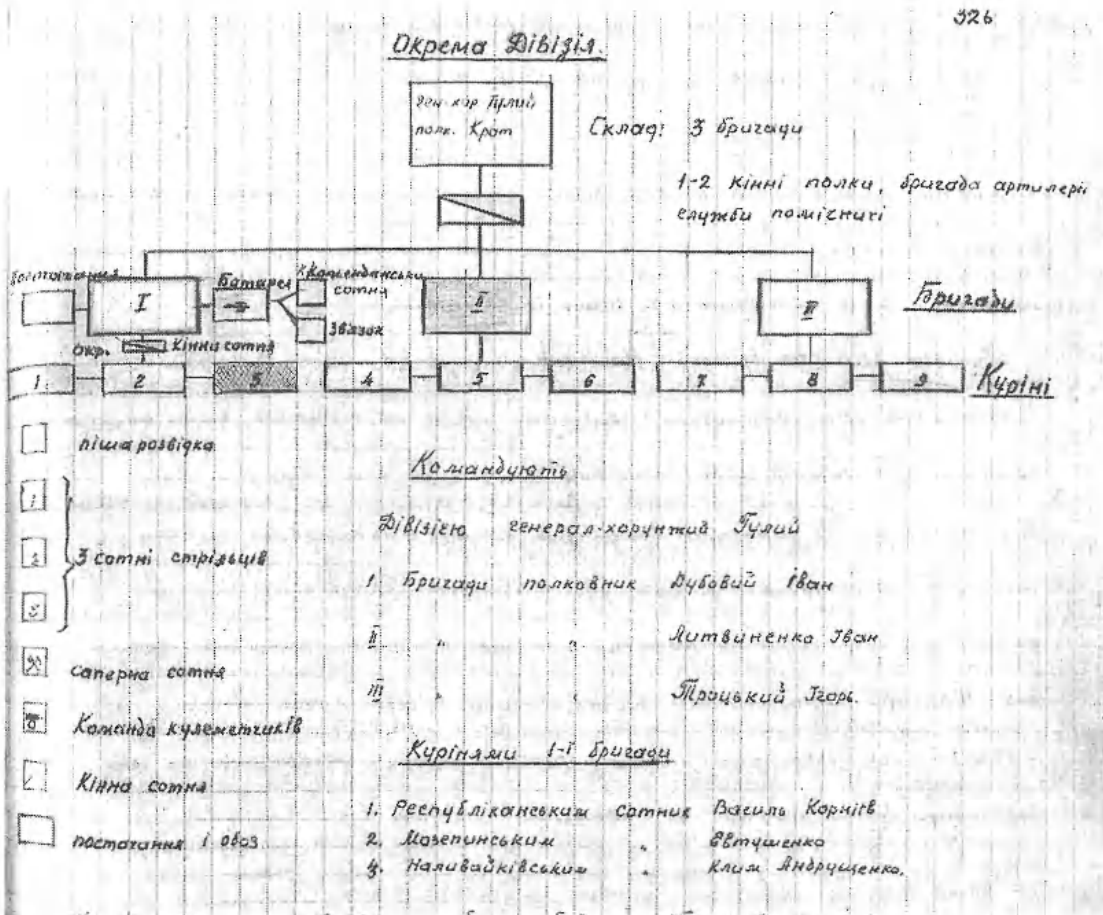 326
Окрема Дівізія.
ген-хор Гулий
полк. Крат
Склад: 3 бригади
1-2 кінні полки, бригада артилерії
служби помічничі
постачання
I
Батарея
Комендансьська сотня
Звязок
II
III
Бригади
окр. Кінна сотня
1 2 3 4 5 6 7 8 9 Куріні
піша розвідка
1
2
3
3 сотні стрільців
саперна сотня
Команда кулеметчиків
Кінна сотня
постачання і обоз
Командують
Дівізією генерал-хорунжий Гулий
1 Бригади полковник Дубовий Іван
II " " Литвиненко Іван
III " " Троцький Ігорь.
Курінями 1-ї бригади
1. Республіканським сотник Василь Корніїв
2. Мазепинським " Євтушенко
3. Наливайківським " Клим Андрущенко.